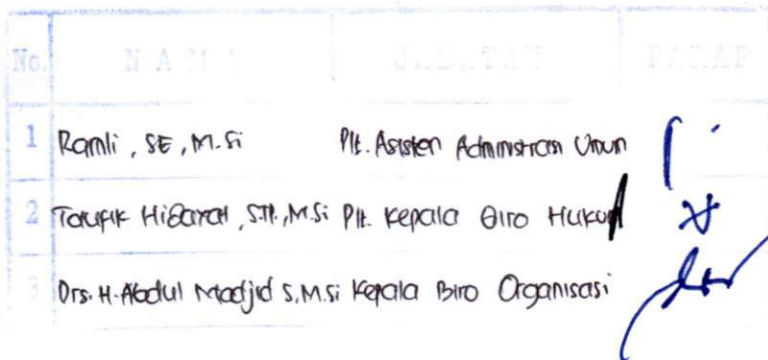 No. NAMA JABATAN PARAF
1 Ramli, SE, M.Si Plt. Asisten Administrasi Umum
2 Taufik Hidayat, S.TP., M.Si Plt. Kepala Biro Hukum
3 Drs. H. Abdul Madjid S, M.Si Kepala Biro Organisasi